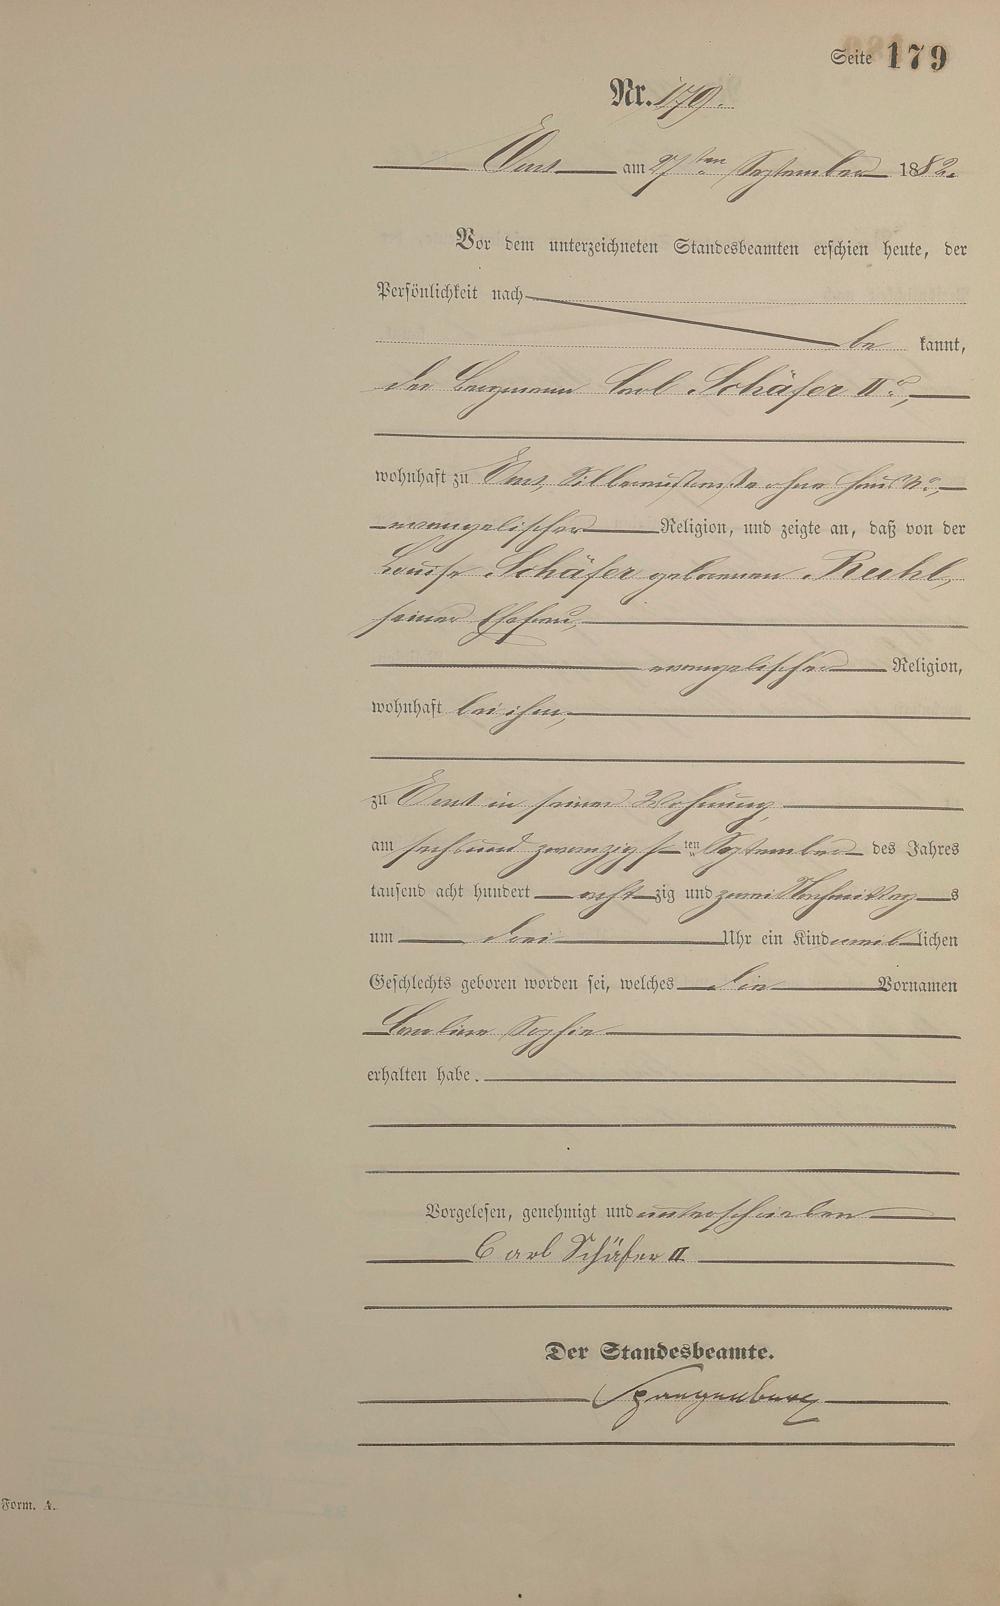 Seite 179
Nr. 179.
Ems am 27ten September 1882.
Vor dem unterzeichneten Standesbeamten erschien heute, der
Persönlichkeit nach
be kannt,
der Bergmann Carl Schäfer II.,
wohnhaft zu Ems, Silberaustraße ohne Haus No.,
evangelischer Religion, und zeigte an, daß von der
Louise Schäfer geborenen Ruhl,
seiner Ehefrau,
evangelischer Religion,
wohnhaft bei ihm,
zu Ems in seiner Wohnung,
am sechs und zwanzigs ten September des Jahres
tausend acht hundert acht zig und zwei Nachmittag s
um drei Uhr ein Kind weib lichen
Geschlechts geboren worden sei, welches die Vornamen
Sophie
erhalten habe.
Vorgelesen, genehmigt und unterschrieben
Carl Schäfer II
Der Standesbeamte.
Spangenberg
Form. A.